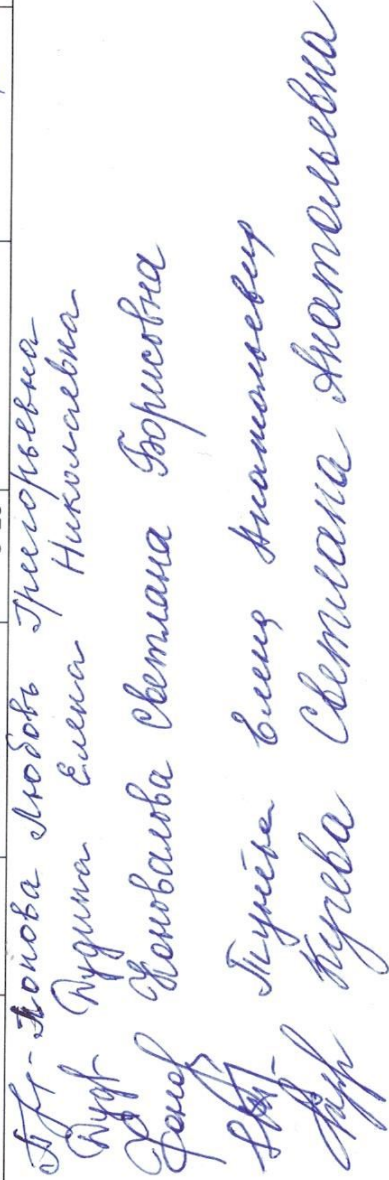 Попова Любовь Григорьевна
Дудина Елена Николаевна
Коновалова Светлана Борисовна
Елена Анатольевна
Кучева Светлана Анатольевна